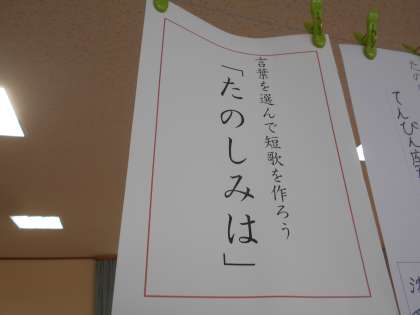 言葉を選んで短歌を作ろう
「たのしみは」
てんびん座